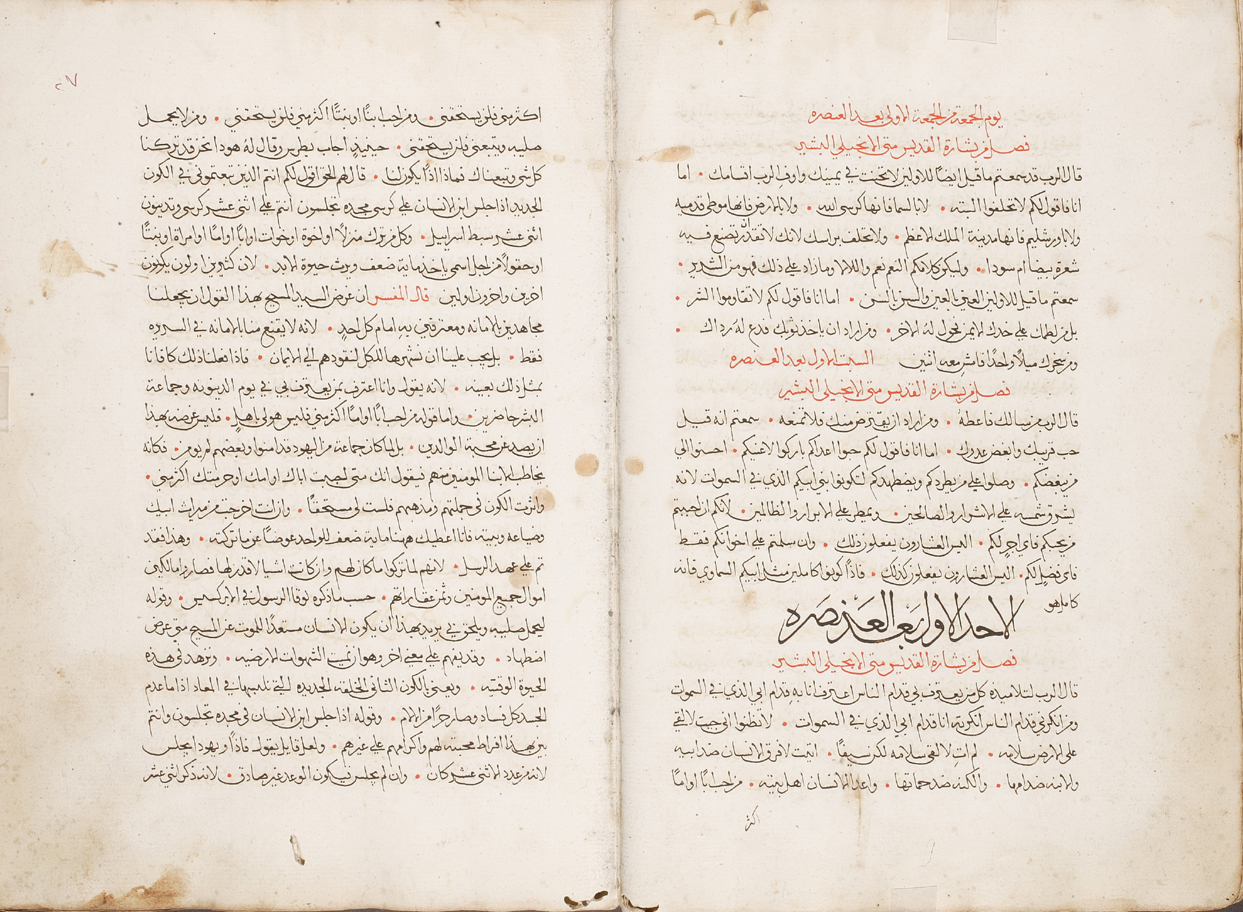 يوم الجمعة من الجمعة الاولى بعد العنصره
فصل من بشارة القديس متى الانجيلي البشير
قال الرب قد سمعتم ما قيل ايضًا للاولين لا تحنث في يمينك واوفِ للرب اقسامك • اما
انا فاقول لكم لا تحلفوا البته • لا بالسما فانها كرسي الله • ولا بالارض فانها موطى قدميه
ولا باورشليم فانها مدينة الملك الاعظم • ولا تحلف براسك لانك لا تقدر تضع فيه
شعرة بيضا ام سودا • وليكن كلامكم النعم نعم واللا لا وما زاد على ذلك فهو من الشرير •
سمعتم ما قيل للاولين العين بالعين والسن بالسن • اما انا فاقول لكم لا تقاوموا الشر •
بل من لطمك على خدك الايمن فحول لهُ الاخر • ومن اراد ان ياخذ ثوبك فدع لهُ رداك •
ومن سخرك ميلًا واحدًا فامشِ معه اثنين السبت الاول بعد العنصره
فصل من بشارة القديس متى الانجيلي البشير
قال الرب من سالك فاعطهُ • ومن اراد ان يقترض منك فلا تمنعه • سمعتم انه قيل
حب قريبك وابغض عدوك • اما انا فاقول لكم حبوا اعداكم باركوا لاعنيكم • احسنوا الى
من يبغضكم • وصلوا على من يطردكم ويضطهدكم لتكونوا بني ابيكم الذي في السموات لانه
يشرق شمسه على الاشرار والصالحين • ويمطر على الابرار والظالمين • لانكم ان احببتم
من يحبكم فاي اجرٍ لكم • اليس العشارون يفعلون ذلك • وان سلمتم على اخوانكم فقط
فاي فضلٍ لكم • اليس العشارون يفعلون كذلك • فاذًا كونوا كاملين مثل ابيكم السماوي فانه
كامل هو
الاحد الاول بعد العنصره
فصل من بشارة القديس متى الانجيلي البشير
قال الرب لتلاميذه كل من يعترف بي قدام الناس اعترف انا به قدام ابي الذي في السموات
ومن انكرني قدام الناس انكرته انا قدام ابي الذي في السموات • لا تظنوا اني جيت لالقي
على الارض سلامه • لم ات لالقي سلامه لكن سيفًا • اتيت لافرق الانسان ضد ابيه
والابنه ضد امها • والكنه ضد حماتها • واعدا الانسان اهل بيته • من احب ابًا او امًا
اكثر
٢٧
اكثر مني فلن يستحقني • ومن احب ابنًا او بنتًا اكثر مني فلن يستحقني • ومن لا يحمل
صليبه ويتبعني فلن يستحقني • حينيذٍ اجاب بطرس وقال له هوذا نحن قد تركنا
كل شي وتبعناك فماذا اذًا يكون لنا • قال لهم الحق اقول لكم انتم الذين تبعتموني في الكون
الجديد اذا جلس ابن الانسان على كرسي مجده تجلسون انتم على اثني عشر كرسي وتدينون
اثني عشر سبط اسراييل • وكل من ترك منزلًا او اخوه او خوات او ابًا او امًا او امراة او بنتًا
او حقولًا من اجل اسمي ياخذ ماية ضعف ويرث حيوة الابد • لان كثيرين اولون يكونون
اخرين واخرون اولين قال المفسر ان غرض السيد المسيح بهذا القول ان يجعلنا
مجاهدين بالامانه ومعترفين به امام كل احدٍ • لانه لا يقنع منا بالامانه في السر وه
فقط • بل يجب علينا ان نشهرها للكل لنقودهم الى الايمان • فاذا فعلنا ذلك كافانا
بمثل ذلك بعينه • لانه يقول وانا اعترف بمن يعترف بي في يوم الدينونه وجماعة
البشر حاضرين • واما قوله من احب ابًا او امًا اكثر مني فليس هو لي باهلٍ • فليس غرضه بهذا
ان يصد عن محبة الوالدين • بل لما كان جماعة من اليهود قد امنوا وبعضهم لم يومن • فكانه
يخاطب الابنا المومنين منهم فيقول انك متى احببت اباك او امك او حرمتك اكثر مني •
واثرت الكون في جملتهم ومذهبهم فلست لي مستحقًا • وان انت اخرجت من ميراث ابيك
وضياعه وبيته فانا اعطيك ههنا ماية ضعف للواحد عوضًا عن ما تركته • وهذا فقد
تم على عهد الرسل • لانهم لما تركوا ما كان لهم وان كانت اشيا لا قدر لها فصاروا مالكين
اموال جميع المومنين وثمن عقاراتهم • حسب ما ذكره لوقا الرسول في الابركسيس • وقوله
ليحمل صليبه ويلحق بي يريد بهذا ان يكون الانسان مستعدًا للموت عن المسيح متى عرض
اضطهاد • وقد يفهم على معنى اخر وهو ان يميت الشهوات الارضيه • ويزهد في هذه
الحيوة الوقتيه • ويعني بالكون الثاني الخلقه الجديده التي نلبسها في المعاد اذا ما عدم
الجسد كل فساد وصار حرًا من الالام • وقوله اذا جلس ابن الانسان في مجده تجلسون وانتم
يبين بهذا افراط محبته لهم واكرامهم على غيرهم • ولعل قايل يقول فاذًا ويهودا يجلس
لانه من عدد الاثني عشر كان • وان لم يجلس فيكون الوعد غير صادق • لانه ذكر اثني عشر